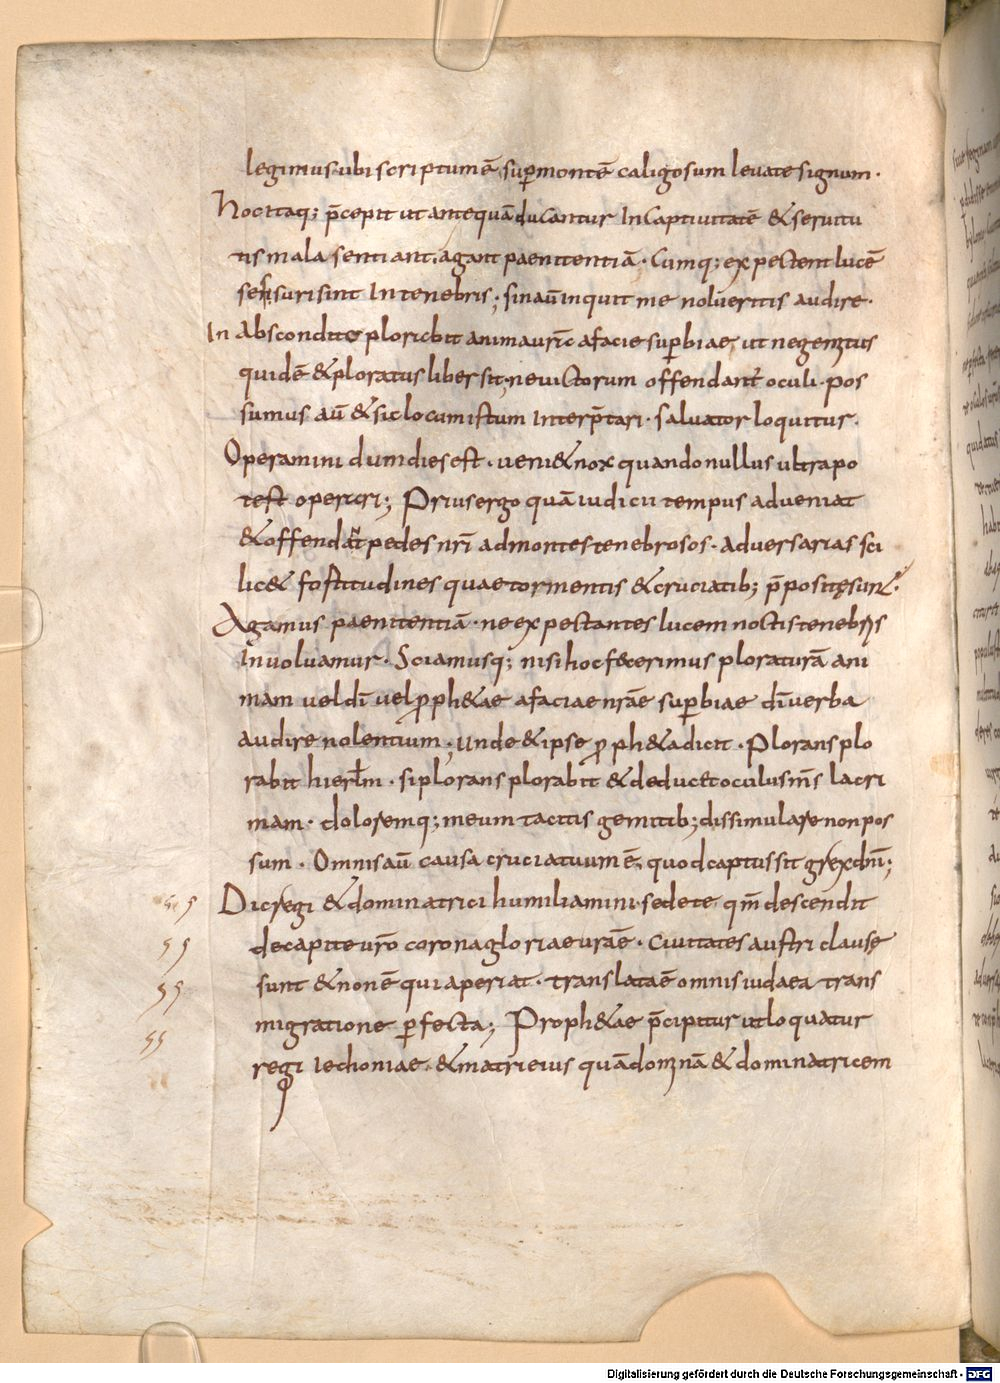 legimus ubi scriptum ē, sup̄ montē caligosum levate signum.
Hoc itaq; p̄cepit ut antequā ducantur In captivitatē & servitu
tis mala sentiant, agant paenitentiā. Cumq; expectent lucē
sensuri sint In tenebris; sin aū inquit me nolueritis audire.
In abscondito plorabit anima ur̄a a facie sup̄biae, ut
quidē & ploratus liber sit, ne victorum offendant oculi. Pos
sumus aū & sic locum istum Interp̄tari. salvator loquitur.
Operamini dum dies est. veni& nox quando nullus ultra po
test operari; Prius ergo quā iudicii tempus adveniat
& offendāt pedes nr̄i ad montes tenebrosos. adversarias sci
lic& fortitudines quae tormentis & cruciatib; p̄positę sunt.
Agamus paenitentiā. ne expectantes lucem noctis tenebris
Involvamur. Sciamusq; nisi hoc fecerimus ploraturā ani
mam vel dī vel p̄ph&ae a faciae nr̄ae sup̄biae dī verba
audire nolentium; Unde & ipse p̄ph&a dicit. Plorans plo
rabit hierl̄m. si plorans plorabit & deducet oculus m̄s lacri
mam. doloremq; meum tacitis gemitib; dissimulare non pos
sum. Omnis aū causa cruciatuum ē, quod captus sit grex dn̄i;
Dic regi & dominatrici humiliamini sedete qm̄ descendit
de capite vr̄o corona gloriae vr̄ae. Civitates austri clausę
sunt & non ē qui aperiat. translata ē omnis iudaea trans
migratione p̄fecta; Proph&ae p̄cipitur ut loquatur
regi Iechoniae. & matri eius quā domnā & dominatricem
Digitalisierung gefördert durch die Deutsche Forschungsgemeinschaft - DFG